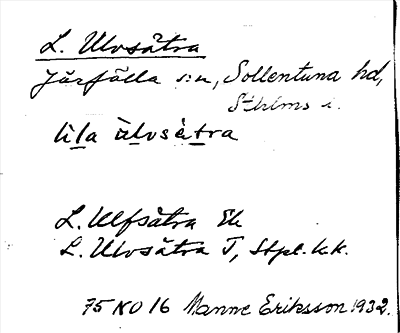 L. Ulvsätra
Järfälla s:n, Sollentuna hd,
Sthlms l.
lila ùlvsàtra
L. Ulfsätra Ek
L. Ulvsätra T, Stpl. k.k.
75 NO 16 Manne Eriksson 1932.